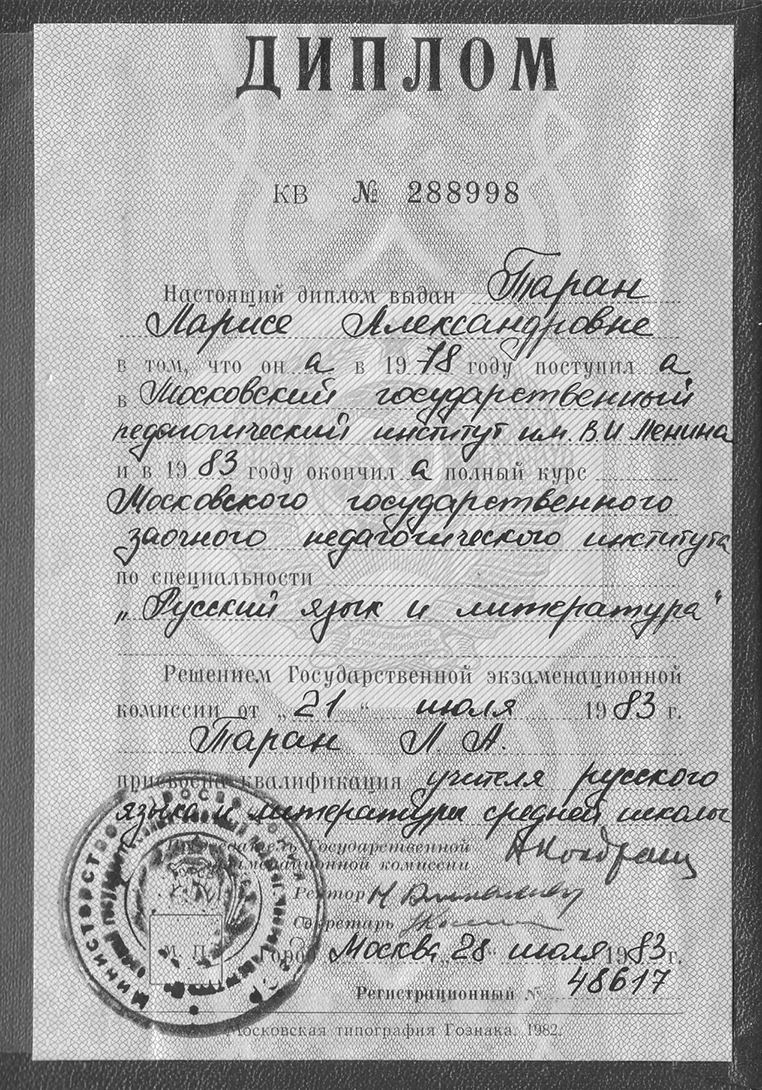 ДИПЛОМ
КВ № 288998
Настоящий диплом выдан Таран
Ларисе Александровне
в том, что он а в 1978 году поступил а
в Московский государственный
педагогический институт им. В.И Ленина
и в 1983 году окончил а полный курс
Московского государственного
заочного педагогического института
по специальности
„Русский язык и литература"
Решением Государственной экзаменационной
комиссии от „21" июля 1983 г.
Таран Л. А.
присвоена квалификация учителя русского
языка и литературы средней школы
Председатель Государственной
экзаменационной комиссии
Ректор
Секретарь
М. П.
Город Москва, 28 июля 1983 г.
Регистрационный № 48617
Московская типография Гознака. 1982.
Министерство